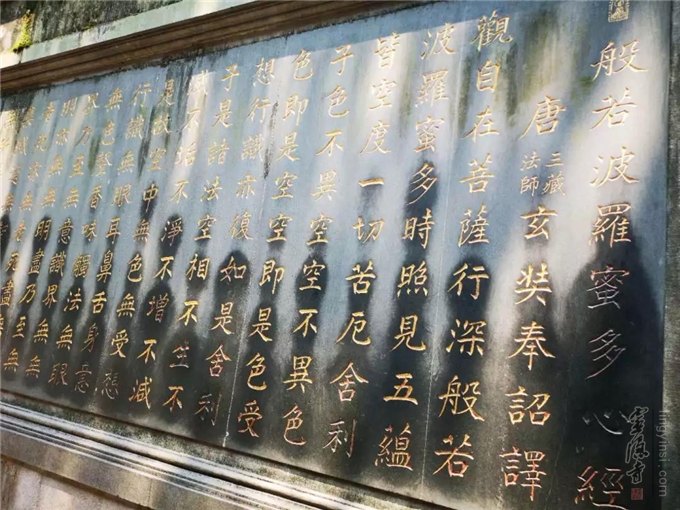 般若波羅蜜多心經
唐三藏法師玄奘奉詔譯
觀自在菩薩行深般若
波羅蜜多時照見五蘊
皆空度一切苦厄舍利
子色不異空空不異色
色即是空空即是色受
想行識亦復如是舍利
子是諸法空相不生不
滅不垢不淨不增不減
是故空中無色無受想
行識無眼耳鼻舌身意
無色聲香味觸法無眼
界乃至無意識界無無
明亦無無明盡乃至無
老死亦無老死盡無
靈隱寺
lingyinsi.com